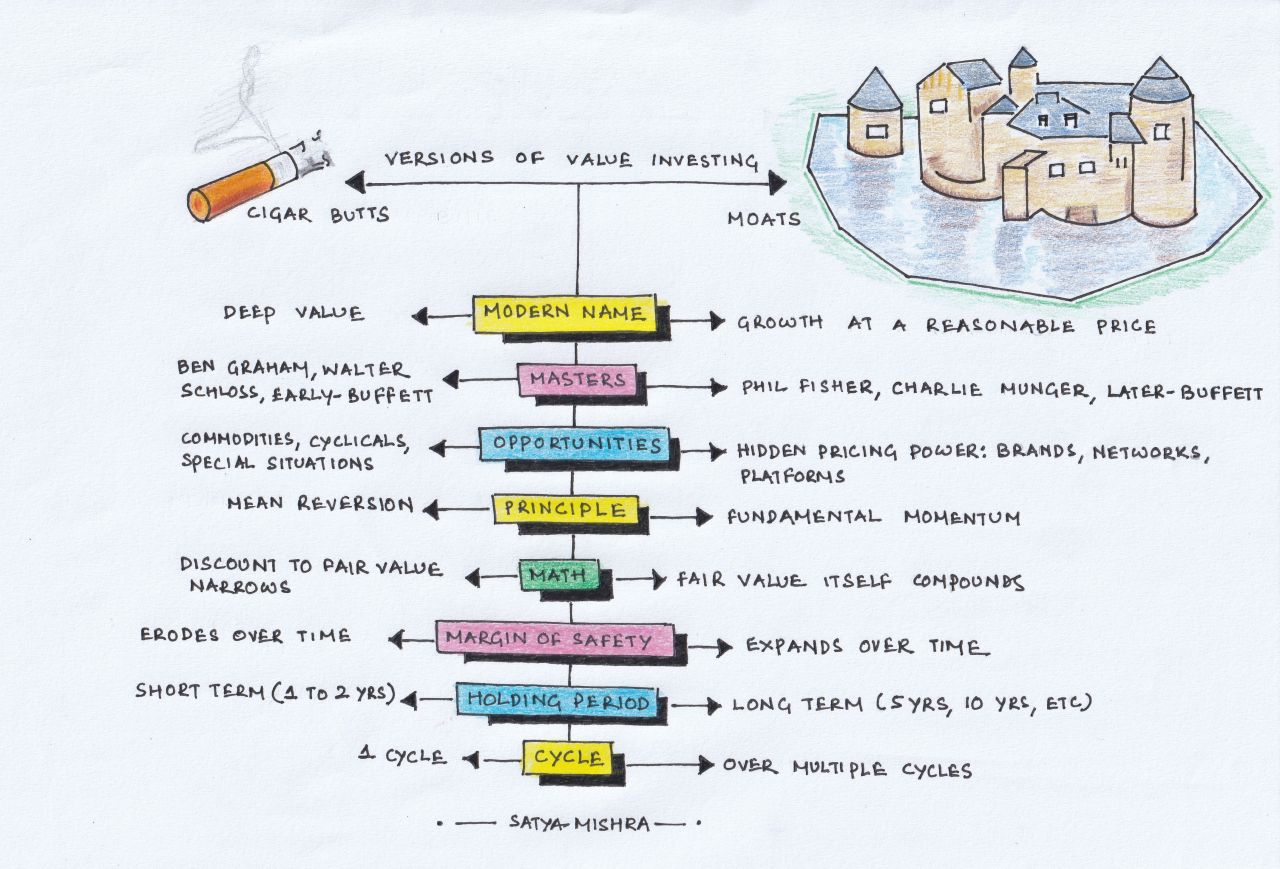 VERSIONS OF VALUE INVESTING
CIGAR BUTTS
MOATS
DEEP VALUE
MODERN NAME
GROWTH AT A REASONABLE PRICE
BEN GRAHAM, WALTER
SCHLOSS, EARLY-BUFFETT
MASTERS
PHIL FISHER, CHARLIE MUNGER, LATER-BUFFETT
COMMODITIES, CYCLICALS,
SPECIAL SITUATIONS
OPPORTUNITIES
HIDDEN PRICING POWER: BRANDS, NETWORKS,
PLATFORMS
MEAN REVERSION
PRINCIPLE
FUNDAMENTAL MOMENTUM
DISCOUNT TO FAIR VALUE
NARROWS
MATH
FAIR VALUE ITSELF COMPOUNDS
ERODES OVER TIME
MARGIN OF SAFETY
EXPANDS OVER TIME
SHORT TERM (1 TO 2 YRS)
HOLDING PERIOD
LONG TERM (5 YRS, 10 YRS, ETC)
1 CYCLE
CYCLE
OVER MULTIPLE CYCLES
SATYA-MISHRA